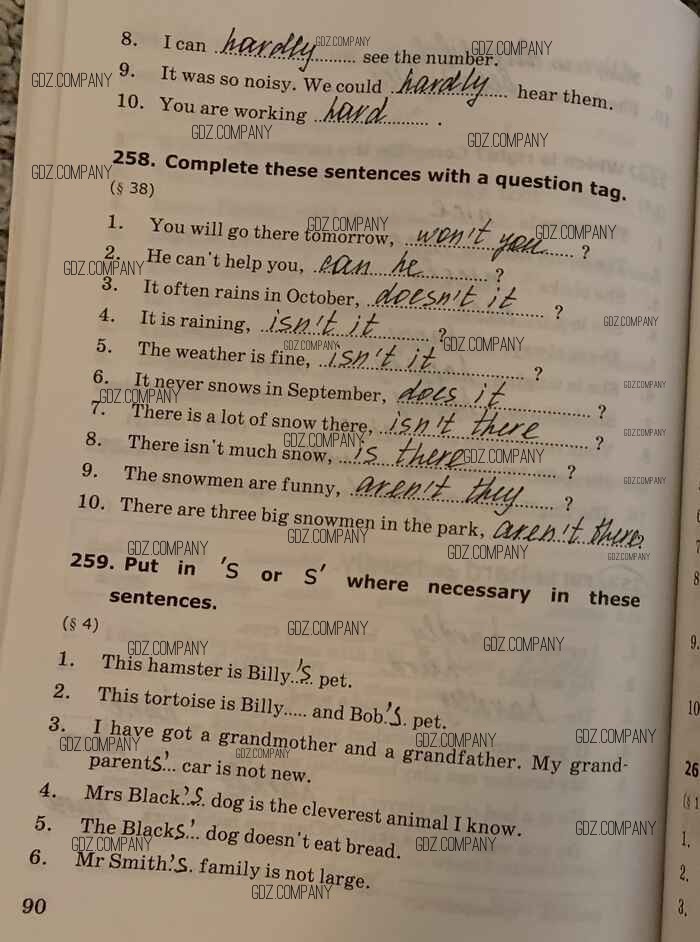 8. I can hardly see the number.
9. It was so noisy. We could hardly hear them.
10. You are working hard.
258. Complete these sentences with a question tag.
(§ 38)
1. You will go there tomorrow, won't you?
2. He can't help you, can he?
3. It often rains in October, doesn't it?
4. It is raining, isn't it?
5. The weather is fine, isn't it?
6. It never snows in September, does it?
7. There is a lot of snow there, isn't there?
8. There isn't much snow, is there?
9. The snowmen are funny, aren't they?
10. There are three big snowmen in the park, aren't there?
259. Put in 's or s' where necessary in these
sentences.
(§ 4)
1. This hamster is Billy..'s. pet.
2. This tortoise is Billy..... and Bob.'s. pet.
3. I have got a grandmother and a grandfather. My grand-
parents'... car is not new.
4. Mrs Black.'s. dog is the cleverest animal I know.
5. The Blacks'.. dog doesn't eat bread.
6. Mr Smith.'s. family is not large.
90
GDZ.COMPANY
9.
10
26
(§ 1
1.
2.
3.